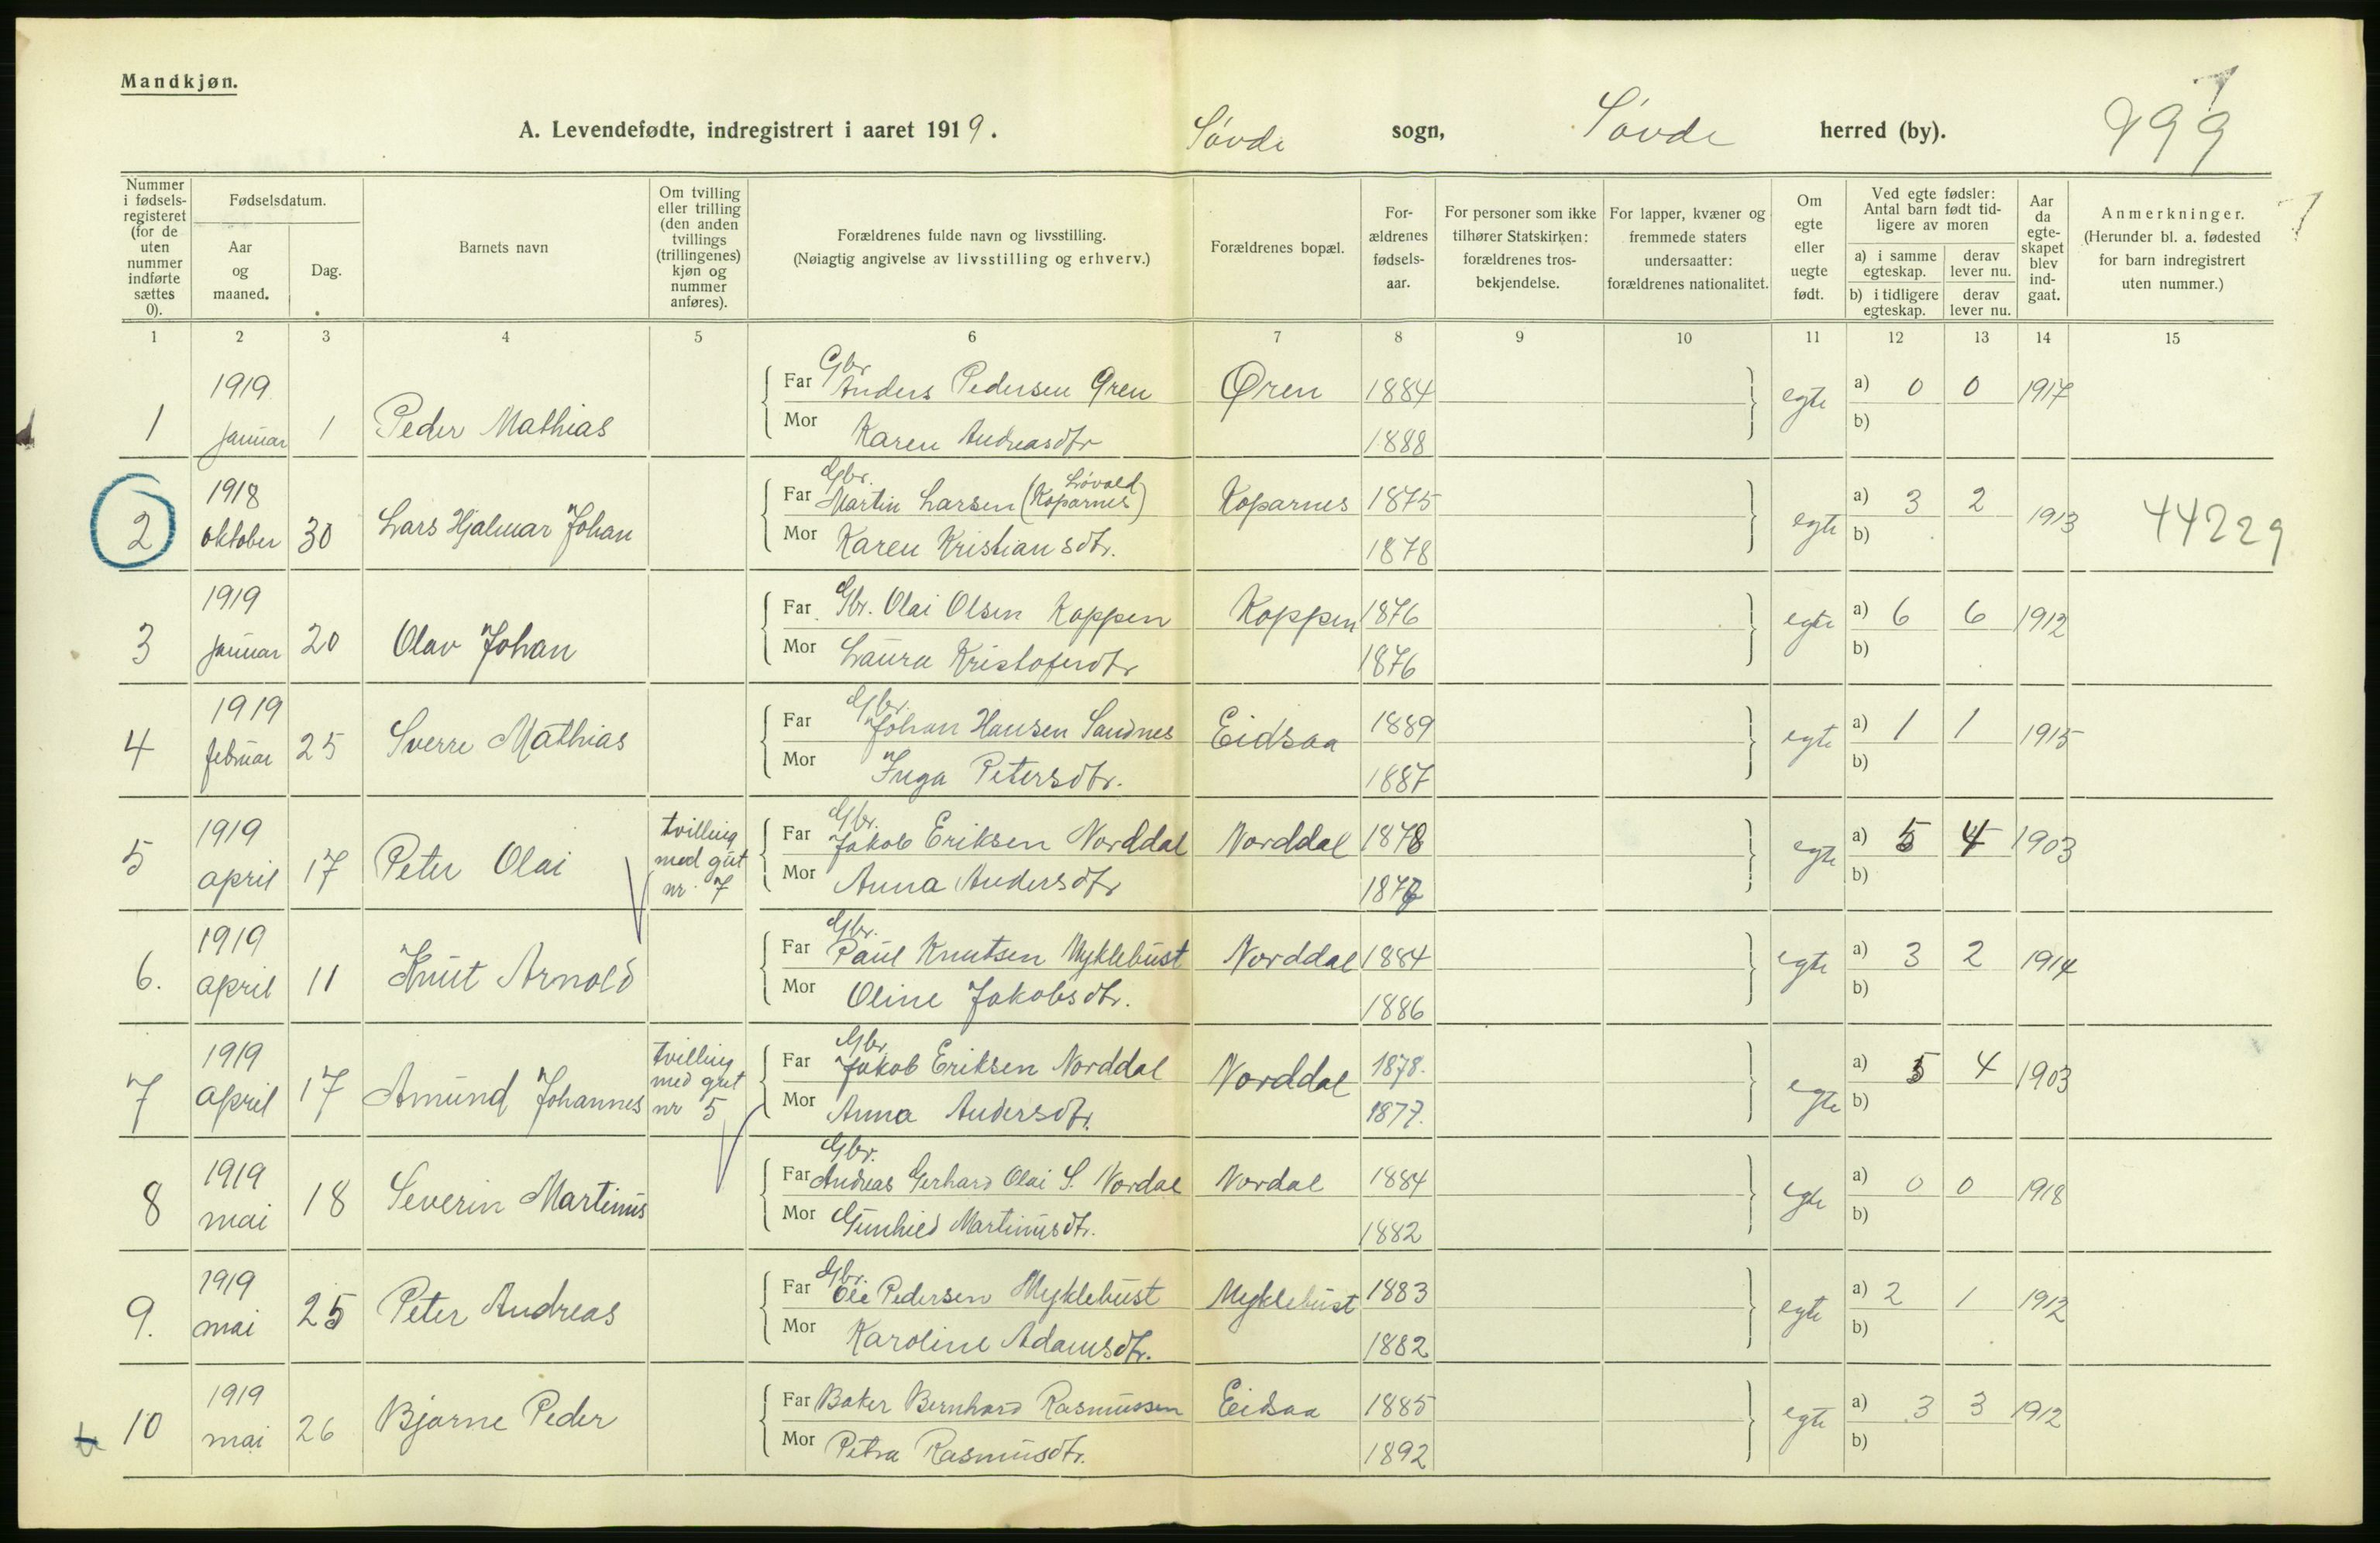 Mandkjøn.
A. Levendefødte, indregistrert i aaret 1919. Søvde sogn, Søvde herred (by). 999
Nummer i fødselsregisteret (for de uten nummer indførte sættes 0).
Fødselsdatum.
Aar og maaned.
Dag.
Barnets navn
Om tvilling eller trilling (den anden tvillings (trillingenes) kjøn og nummer anføres).
Forældrenes fulde navn og livsstilling.
(Nøiagtig angivelse av livsstilling og erhverv.)
Forældrenes bopæl.
Forældrenes fødselsaar.
For personer som ikke tilhører Statskirken: forældrenes trosbekjendelse.
For lapper, kvæner og fremmede staters undersaatter: forældrenes nationalitet.
Om egte eller uegte født.
Ved egte fødsler: Antal barn født tidligere av moren
a) i samme egteskap. derav lever nu.
b) i tidligere egteskap. derav lever nu.
Aar da egteskapet blev indgaat.
Anmerkninger.
(Herunder bl. a. fødested for barn indregistrert uten nummer.)
1 2 3 4 5 6 7 8 9 10 11 12 13 14 15
1 1919 januar 1 Peder Mathias
Far Gbr. Anders Pedersen Øren Øren 1884 egte a) 0 0 1917
Mor Karen Andreasdtr 1888 b)
2 1918 oktober 30 Lars Hjalmar Johan
Far Gbr. Martin Larsen (Koparnes) Løvold Koparnes 1875 egte a) 3 2 1913 44229
Mor Karen Kristiansdtr. 1878 b)
3 1919 januar 20 Olav Johan
Far Gbr. Olai Olsen Koppen Koppen 1876 egte a) 6 6 1912
Mor Laura Kristoferdtr 1876 b)
4 1919 februar 25 Sverre Mathias
Far Gbr. Johan Hansen Sandnes Eidsaa 1889 egte a) 1 1 1915
Mor Inga Petersdtr. 1887 b)
5 1919 april 17 Peter Olai tvilling med gut nr. 7
Far Gbr. Jakob Eriksen Norddal Norddal 1878 egte a) 5 4 1903
Mor Anna Andersdtr 1877 b)
6. 1919 april 11 Knut Arnold
Far Gbr. Paul Knutsen Myklebust Norddal 1884 egte a) 3 2 1914
Mor Oline Jakobsdtr. 1886 b)
7 1919 april 17 Amund Johannes tvilling med gut nr 5
Far Gbr. Jakob Eriksen Norddal Norddal 1878. egte a) 5 4 1903
Mor Anna Andersdtr. 1877. b)
8 1919 mai 18 Severin Martinus
Far Gbr. Andreas Gerhard Olai S. Nordal Nordal 1884 egte a) 0 0 1918
Mor Gunhild Martinusdtr. 1882 b)
9. 1919 mai 25 Peter Andreas
Far Gbr. Ole Pedersen Myklebust Myklebust 1883 egte a) 2 1 1912
Mor Karoline Adamsdtr. 1882 b)
10 1919 mai 26 Bjarne Peder
Far Baker Bernhard Rasmussen Eidsaa 1885 egte a) 3 3 1912
Mor Petra Rasmusdtr. 1892 b)